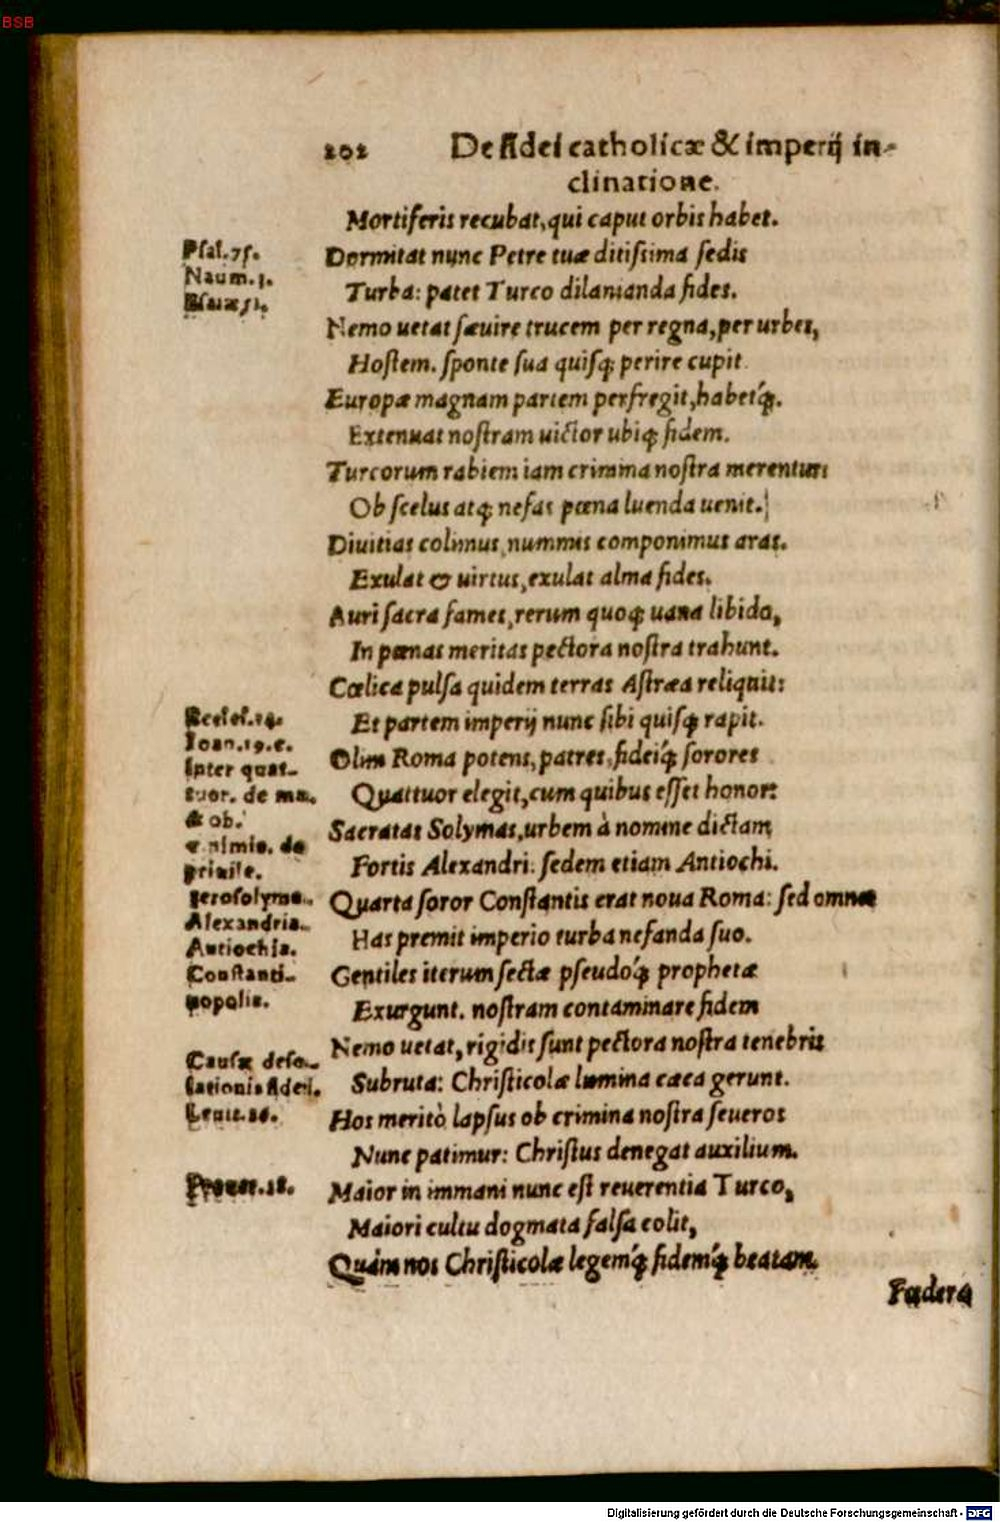 BSB
202 De fidei catholicæ & imperij in-
clinatione.
Mortiferis recubat, qui caput orbis habet.
Psal. 75.
Dormitat nunc Petre tuæ ditiſsima ſedis
Naum. 3.
Turba: patet Turco dilanianda fides.
Eſaiæ 51.
Nemo uetat ſæuire trucem per regna, per urbes,
Hoſtem. ſponte ſua quiſq; perire cupit.
Europæ magnam partem perfregit, habetq́;.
Extenuat noſtram uictor ubiq; fidem.
Turcorum rabiem iam crimina noſtra merentur:
Ob ſcelus atq; nefas pœna luenda uenit.
Diuitias colimus, nummis componimus aras.
Exulat & uirtus, exulat alma fides.
Auri ſacra fames, rerum quoq; uana libido,
In pœnas meritas pectora noſtra trahunt.
Cœlica pulſa quidem terras Aſtræa reliquit:
Eccleſ. 14.
Et partem imperij nunc ſibi quiſq; rapit.
Ioan. 19. c.
Olim Roma potens, patres, fideiq́; ſorores
Inter quat-
tuor. de ma.
Quattuor elegit, cum quibus eſſet honor:
& ob.
Sacratas Solymas, urbem à nomine dictam
nimis. de
priuile.
Fortis Alexandri. ſedem etiam Antiochi.
Ieroſolyma.
Quarta ſoror Conſtantis erat noua Roma: ſed omnes
Alexandria.
Antiochia.
Has premit imperio turba nefanda ſuo.
Conſtanti-
Gentiles iterum ſectæ pſeudoq́; prophetæ
nopolis.
Exurgunt. noſtram contaminare fidem
Nemo uetat, rigidis ſunt pectora noſtra tenebris
Cauſæ deſo-
lationis fidei.
Subruta: Chriſticolæ lumina cæca gerunt.
Leuit. 26.
Hos meritò lapſus ob crimina noſtra ſeueros
Nunc patimur: Chriſtus denegat auxilium.
Prouer. 28.
Maior in immani nunc eſt reuerentia Turco,
Maiori cultu dogmata falſa colit,
Quàm nos Chriſticolæ legemq́; fidemq́; beatam.
Fœdera
Digitalisierung gefördert durch die Deutsche Forschungsgemeinschaft - DFG